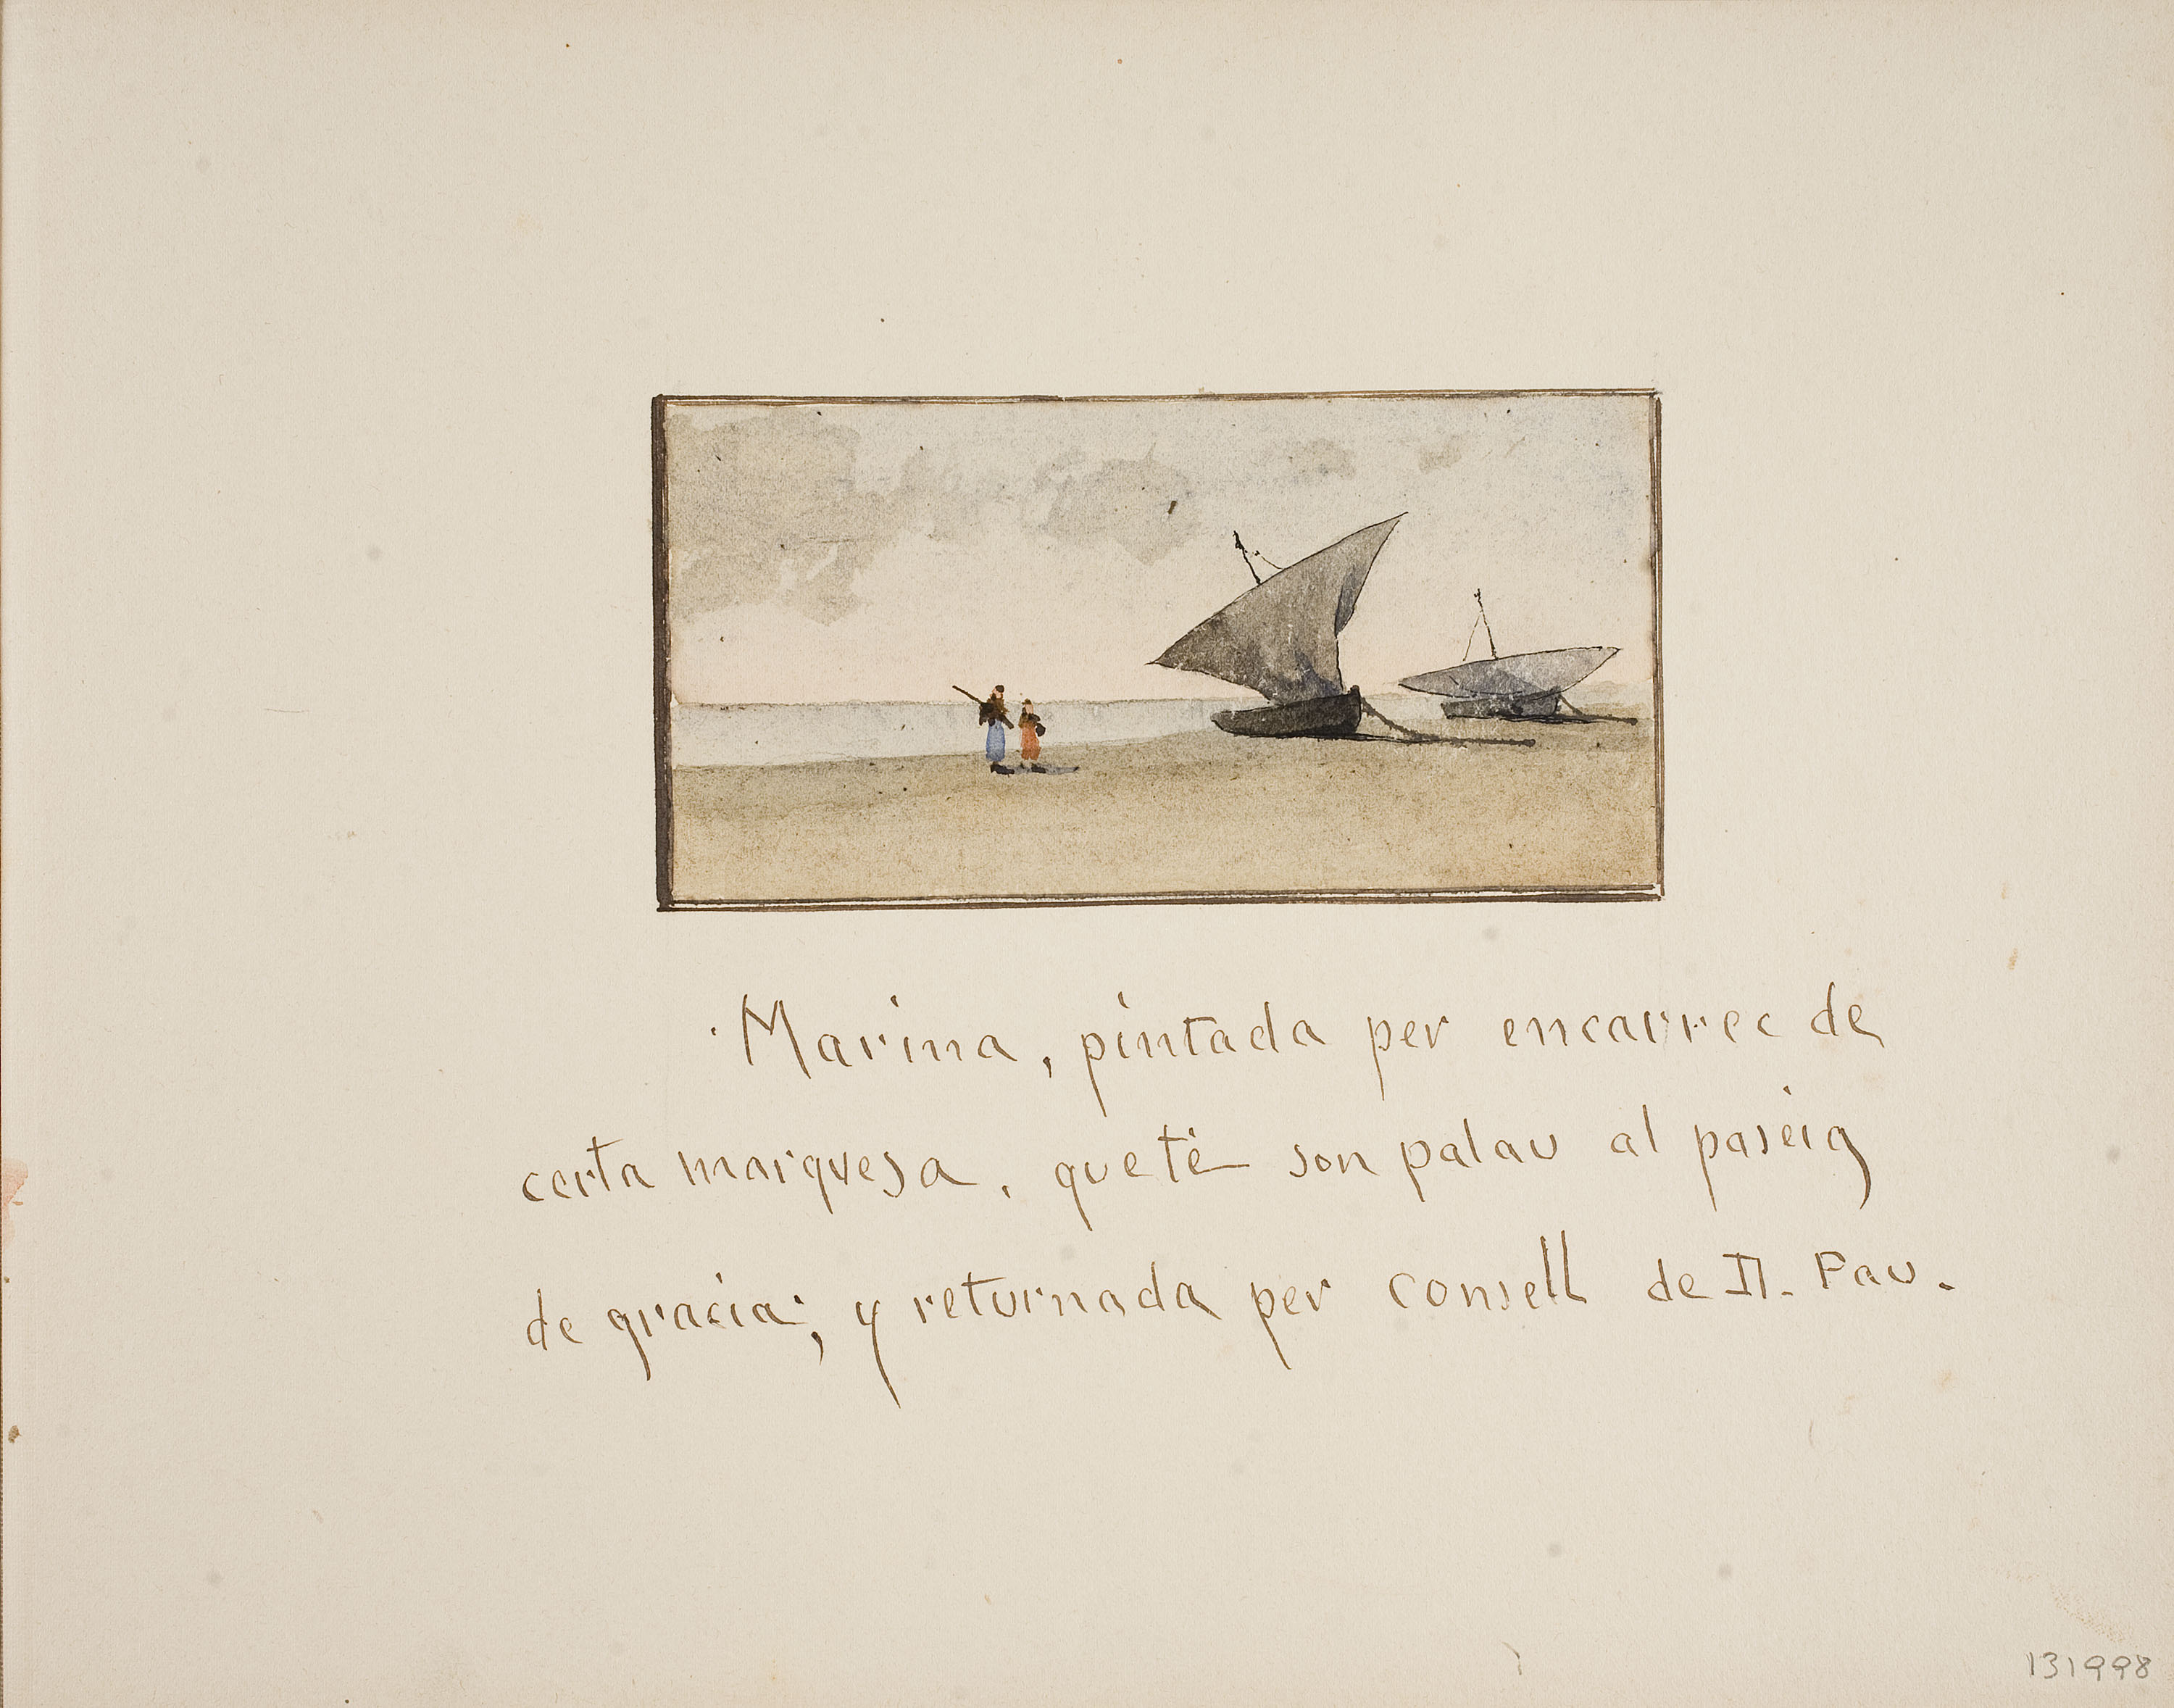 Marina, pintada per encarrec de
certa marquesa, que té son palau al paseig
de gracia; y returnada per consell de D. Pau.
131998